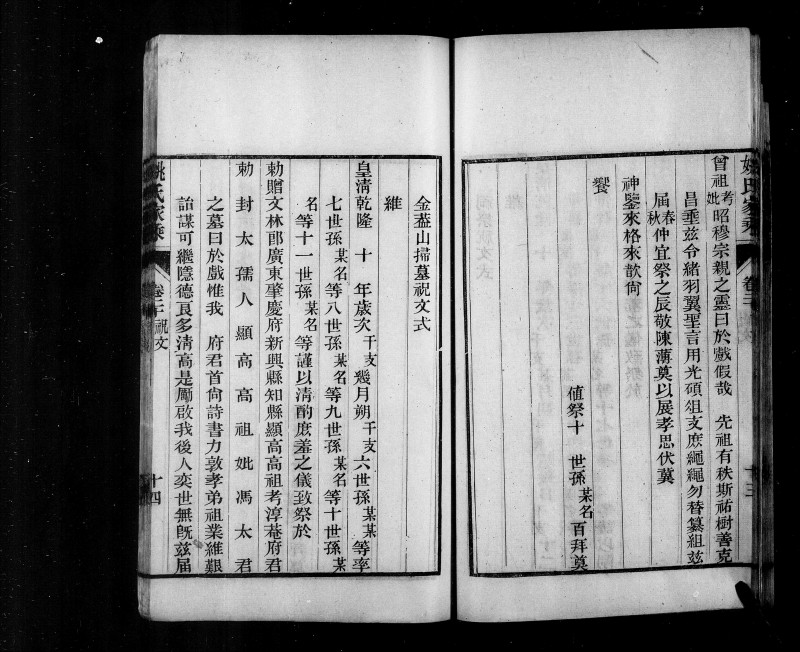 姚氏家乘 卷二 十三
曾祖考妣昭穆宗親之靈曰於戲假哉 先祖有秩斯祜樹善克
昌垂茲令緒羽翼聖言用光碩俎支庶繩繩勿替纂組茲
届春秋仲宜祭之辰敬陳薄奠以展孝思伏冀
神鑒來格來歆尙
饗
値祭十 世孫某名百拜奠
金蓋山掃墓祝文式
維
皇清乾隆 十 年歲次干支幾月朔干支六世孫某某等率
七世孫某名等八世孫某名等九世孫某名等十世孫某
名等十一世孫某名等謹以清酌庶羞之儀致祭於
勅贈文林郎廣東肇慶府新興縣知縣顯高高祖考淳菴府君
勅封太孺人顯高高祖妣馮太君
之墓曰於戲惟我 府君首尙詩書力敦孝弟祖業維艱
詒謀可繼隱德良多清高是勵啟我後人奕世無旣茲届
姚氏家乘 卷二 祝文 十四